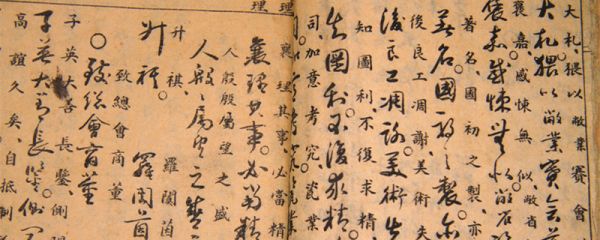 大札猥以敝業賽會
大札猥以敝業賽會
褒嘉、感悚無似、敝省
褒嘉感悚無似敝省
著名國初之製、亦
著名國初之製亦
後良工凋謝、美術失
後良工凋謝美術失
知圖利、不復求精
知圖利不復求精
司、加意考究、瓷業
理
襄理其事、必當精
襄理其事必當精
人殷殷屬望之盛
人殷屬望之盛
升祺
升祺
致總會商董
○致總會商董
子英大善長鑒、側聆
子英大善長鑒側
高誼久矣、自抵制